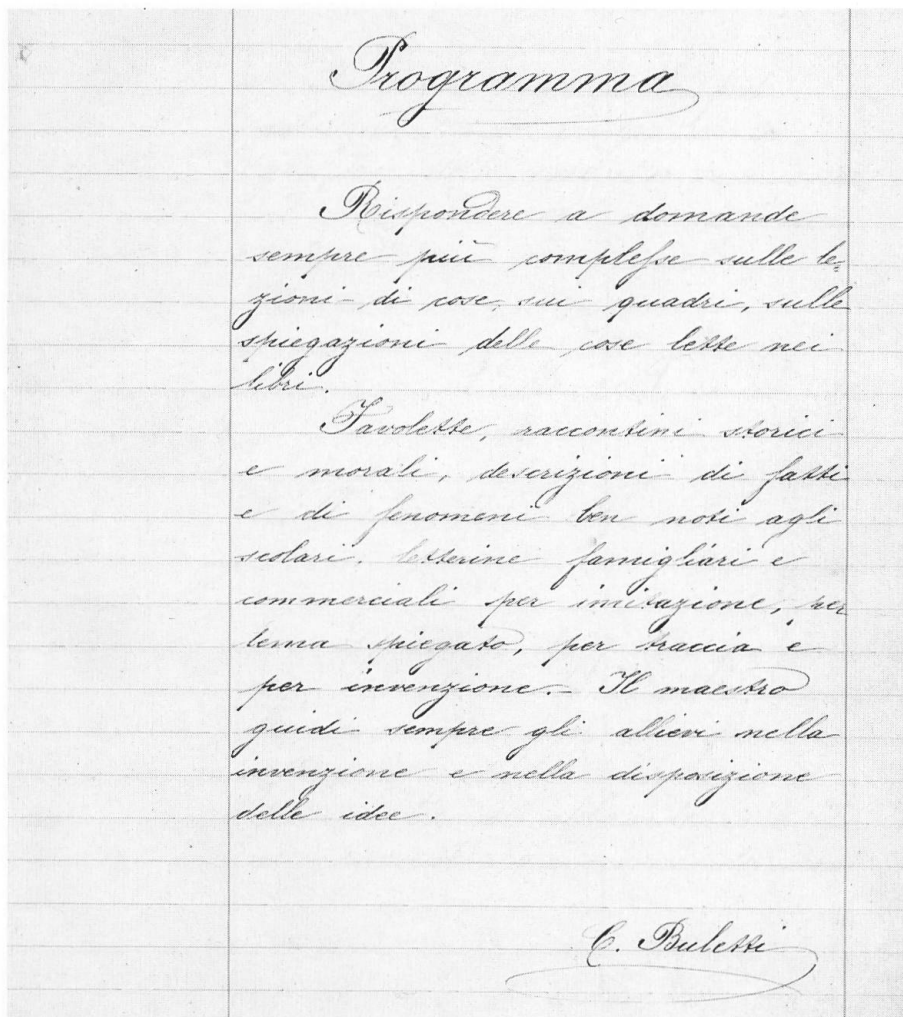 Programma
Rispondere a domande
sempre più complesse sulle le=
zioni di cose, sui quadri, sulle
spiegazioni delle cose lette nei
libri.
Favolette, raccontini storici
e morali, descrizioni di fatti
e di fenomeni ben noti agli
scolari, letterine famigliari e
commerciali per imitazione, per
tema spiegato, per traccia e
per invenzione. – Il maestro
guidi sempre gli allievi nella
invenzione e nella disposizione
delle idee.
C. Buletti